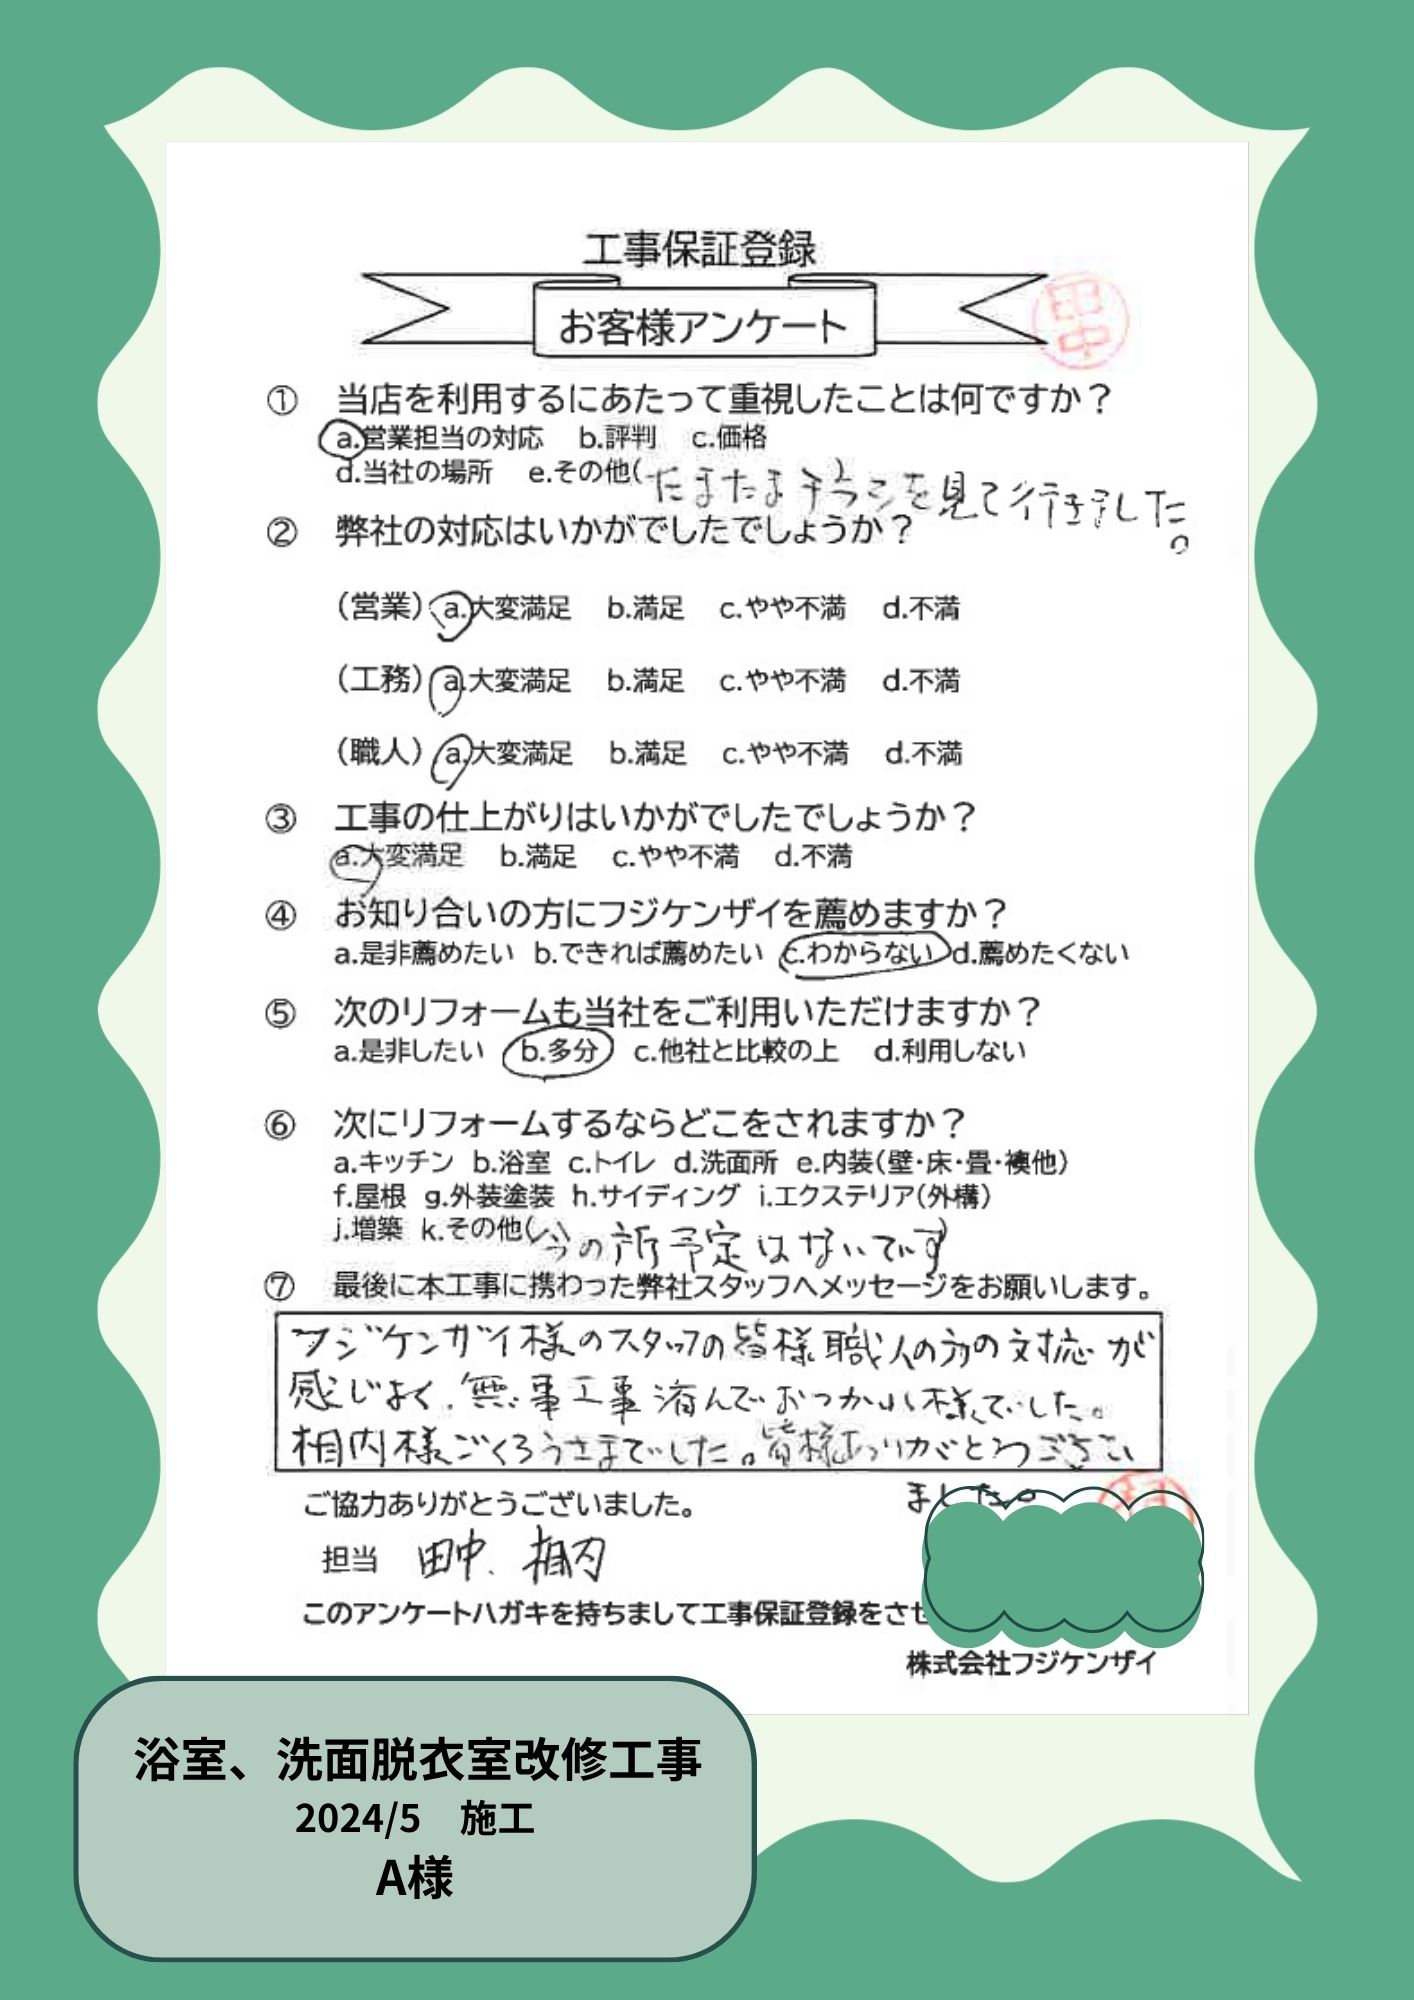 工事保証登録
お客様アンケート
田中
① 当店を利用するにあたって重視したことは何ですか？
a.営業担当の対応 b.評判 c.価格
d.当社の場所 e.その他(たまたまチラシを見て行きました。
② 弊社の対応はいかがでしたでしょうか？
（営業）a.大変満足 b.満足 c.やや不満 d.不満
（工務）a.大変満足 b.満足 c.やや不満 d.不満
（職人）a.大変満足 b.満足 c.やや不満 d.不満
③ 工事の仕上がりはいかがでしたでしょうか？
a.大変満足 b.満足 c.やや不満 d.不満
④ お知り合いの方にフジケンザイを薦めますか？
a.是非薦めたい b.できれば薦めたい c.わからない d.薦めたくない
⑤ 次のリフォームも当社をご利用いただけますか？
a.是非したい b.多分 c.他社と比較の上 d.利用しない
⑥ 次にリフォームするならどこをされますか？
a.キッチン b.浴室 c.トイレ d.洗面所 e.内装（壁・床・畳・襖他）
f.屋根 g.外装塗装 h.サイディング i.エクステリア（外構）
j.増築 k.その他(今の所予定はないです)
⑦ 最後に本工事に携わった弊社スタッフへメッセージをお願いします。
フジケンザイ様のスタッフの皆様職人の方の対応が
感じよく、無事工事済んでおつかれ様でした。
相内様ごくろうさまでした。皆様ありがとうござい
ました。
ご協力ありがとうございました。
担当 田中、相内
このアンケートハガキを持ちまして工事保証登録をさせ
株式会社フジケンザイ
浴室、洗面脱衣室改修工事
2024/5 施工
A様